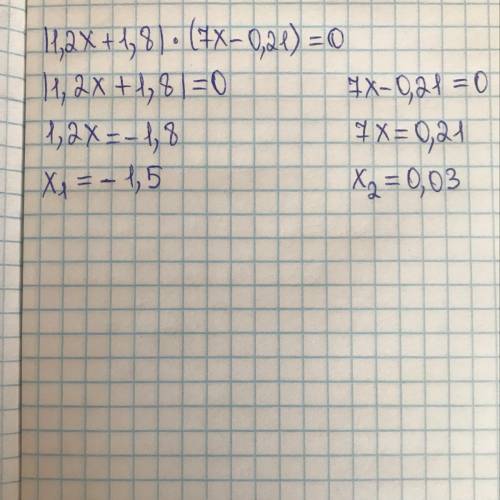 |1,2x+1,8|·(7x-0,21)=0
|1,2x+1,8|=0 7x-0,21=0
1,2x=-1,8 7x=0,21
x₁=-1,5 x₂=0,03